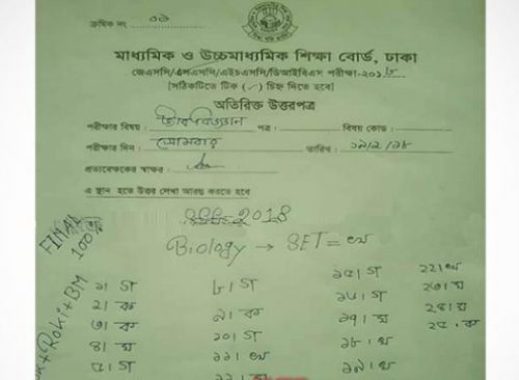 ক্রমিক নং ০৯
মাধ্যমিক ও উচ্চমাধ্যমিক শিক্ষা বোর্ড, ঢাকা
জেএসসি/এসএসসি/এইচএসসি/ডিআইবিএস পরীক্ষা-২০১৮
[সঠিকটিতে টিক (✓) চিহ্ন দিতে হবে]
অতিরিক্ত উত্তরপত্র
পরীক্ষার বিষয় : জীববিজ্ঞান পত্র : বিষয় কোড :
পরীক্ষার দিন : সোমবার তারিখ : ১৯/২/১৮
প্রত্যবেক্ষকের স্বাক্ষর :
এ স্থান হতে উত্তর লেখা আরম্ভ করতে হবে
SSC-2018
Biology → SET = খ
FINAL 100%
+Roki+BM
১। গ
২। ক
৩। ক
৪। ঘ
৫। গ
৮। গ
৯। ক
১০। গ
১১। খ
১২। ক
১৫। গ
১৬। গ
১৭। ঘ
১৮। খ
১৯। খ
২২। খ
২৩। ঘ
২৪। ঘ
২৫। ক